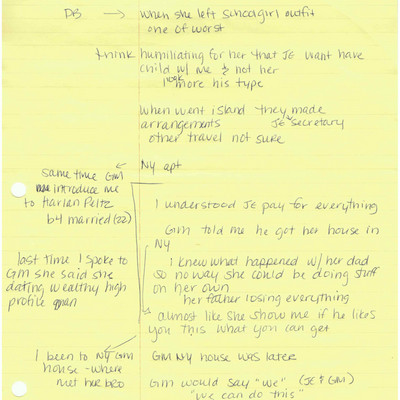 DB → when she left schoolgirl outfit
one of worst
think humiliating for her that JE want have
child w/ me & not her
look
more his type
when went island they made
arrangements JE secretary
other travel not sure
NY apt
same time GM
introduce me
to Harlan Peltz
b4 married (22)
I understood JE pay for everything
GM told me he got her house in
NY
last time I spoke to
GM she said she
dating wealthy high
profile man
I knew what happened w/ her dad
so no way she could be doing stuff
on her own
her father losing everything
almost like she show me if he likes
you this what you can get
I been to NY GM
house - where
met her bro
GM NY house was later
GM would say "we" (JE & GM)
"we can do this"